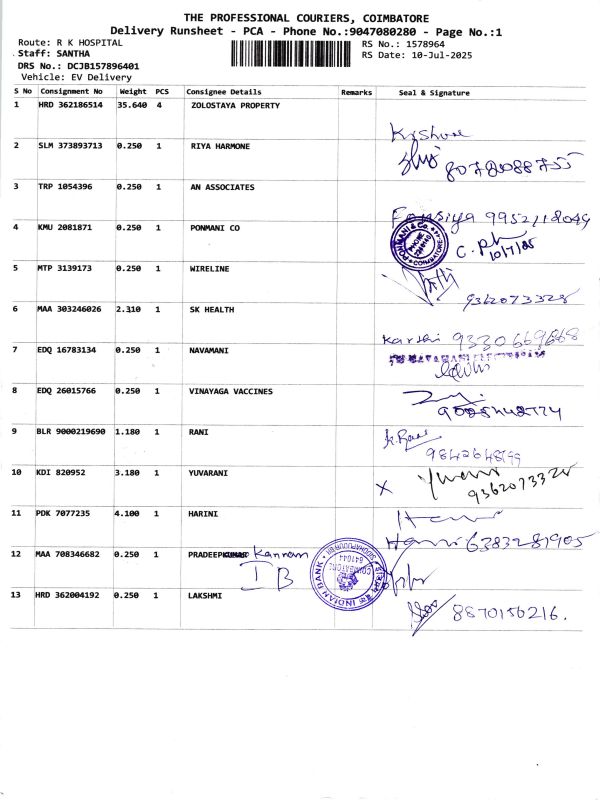 THE PROFESSIONAL COURIERS, COIMBATORE
Delivery Runsheet - PCA - Phone No.:9047080280 - Page No.:1
Route: R K HOSPITAL
RS No.: 1578964
Staff: SANTHA
RS Date: 10-Jul-2025
DRS No.: DCJB157896401
Vehicle: EV Delivery
S No Consignment No Weight PCS Consignee Details Remarks Seal & Signature
1 HRD 362186514 35.640 4 ZOLOSTAYA PROPERTY
Kishore
2 SLM 373893713 0.250 1 RIYA HARMONE
3 TRP 1054396 0.250 1 AN ASSOCIATES
9952118049
4 KMU 2081871 0.250 1 PONMANI CO
PONMANI & Co. COIMBATORE
10/7/25
5 MTP 3139173 0.250 1 WIRELINE
9362073328
6 MAA 303246026 2.310 1 SK HEALTH
7 EDQ 16783134 0.250 1 NAVAMANI
8 EDQ 26015766 0.250 1 VINAYAGA VACCINES
9 BLR 9000219690 1.180 1 RANI
10 KDI 820952 3.180 1 YUVARANI
X
9362073328
11 PDK 7077235 4.100 1 HARINI
Harini 6383281905
12 MAA 708346682 0.250 1 PRADEEP Kannan
IB
INDIAN BANK COIMBATORE
13 HRD 362004192 0.250 1 LAKSHMI
8870156216.